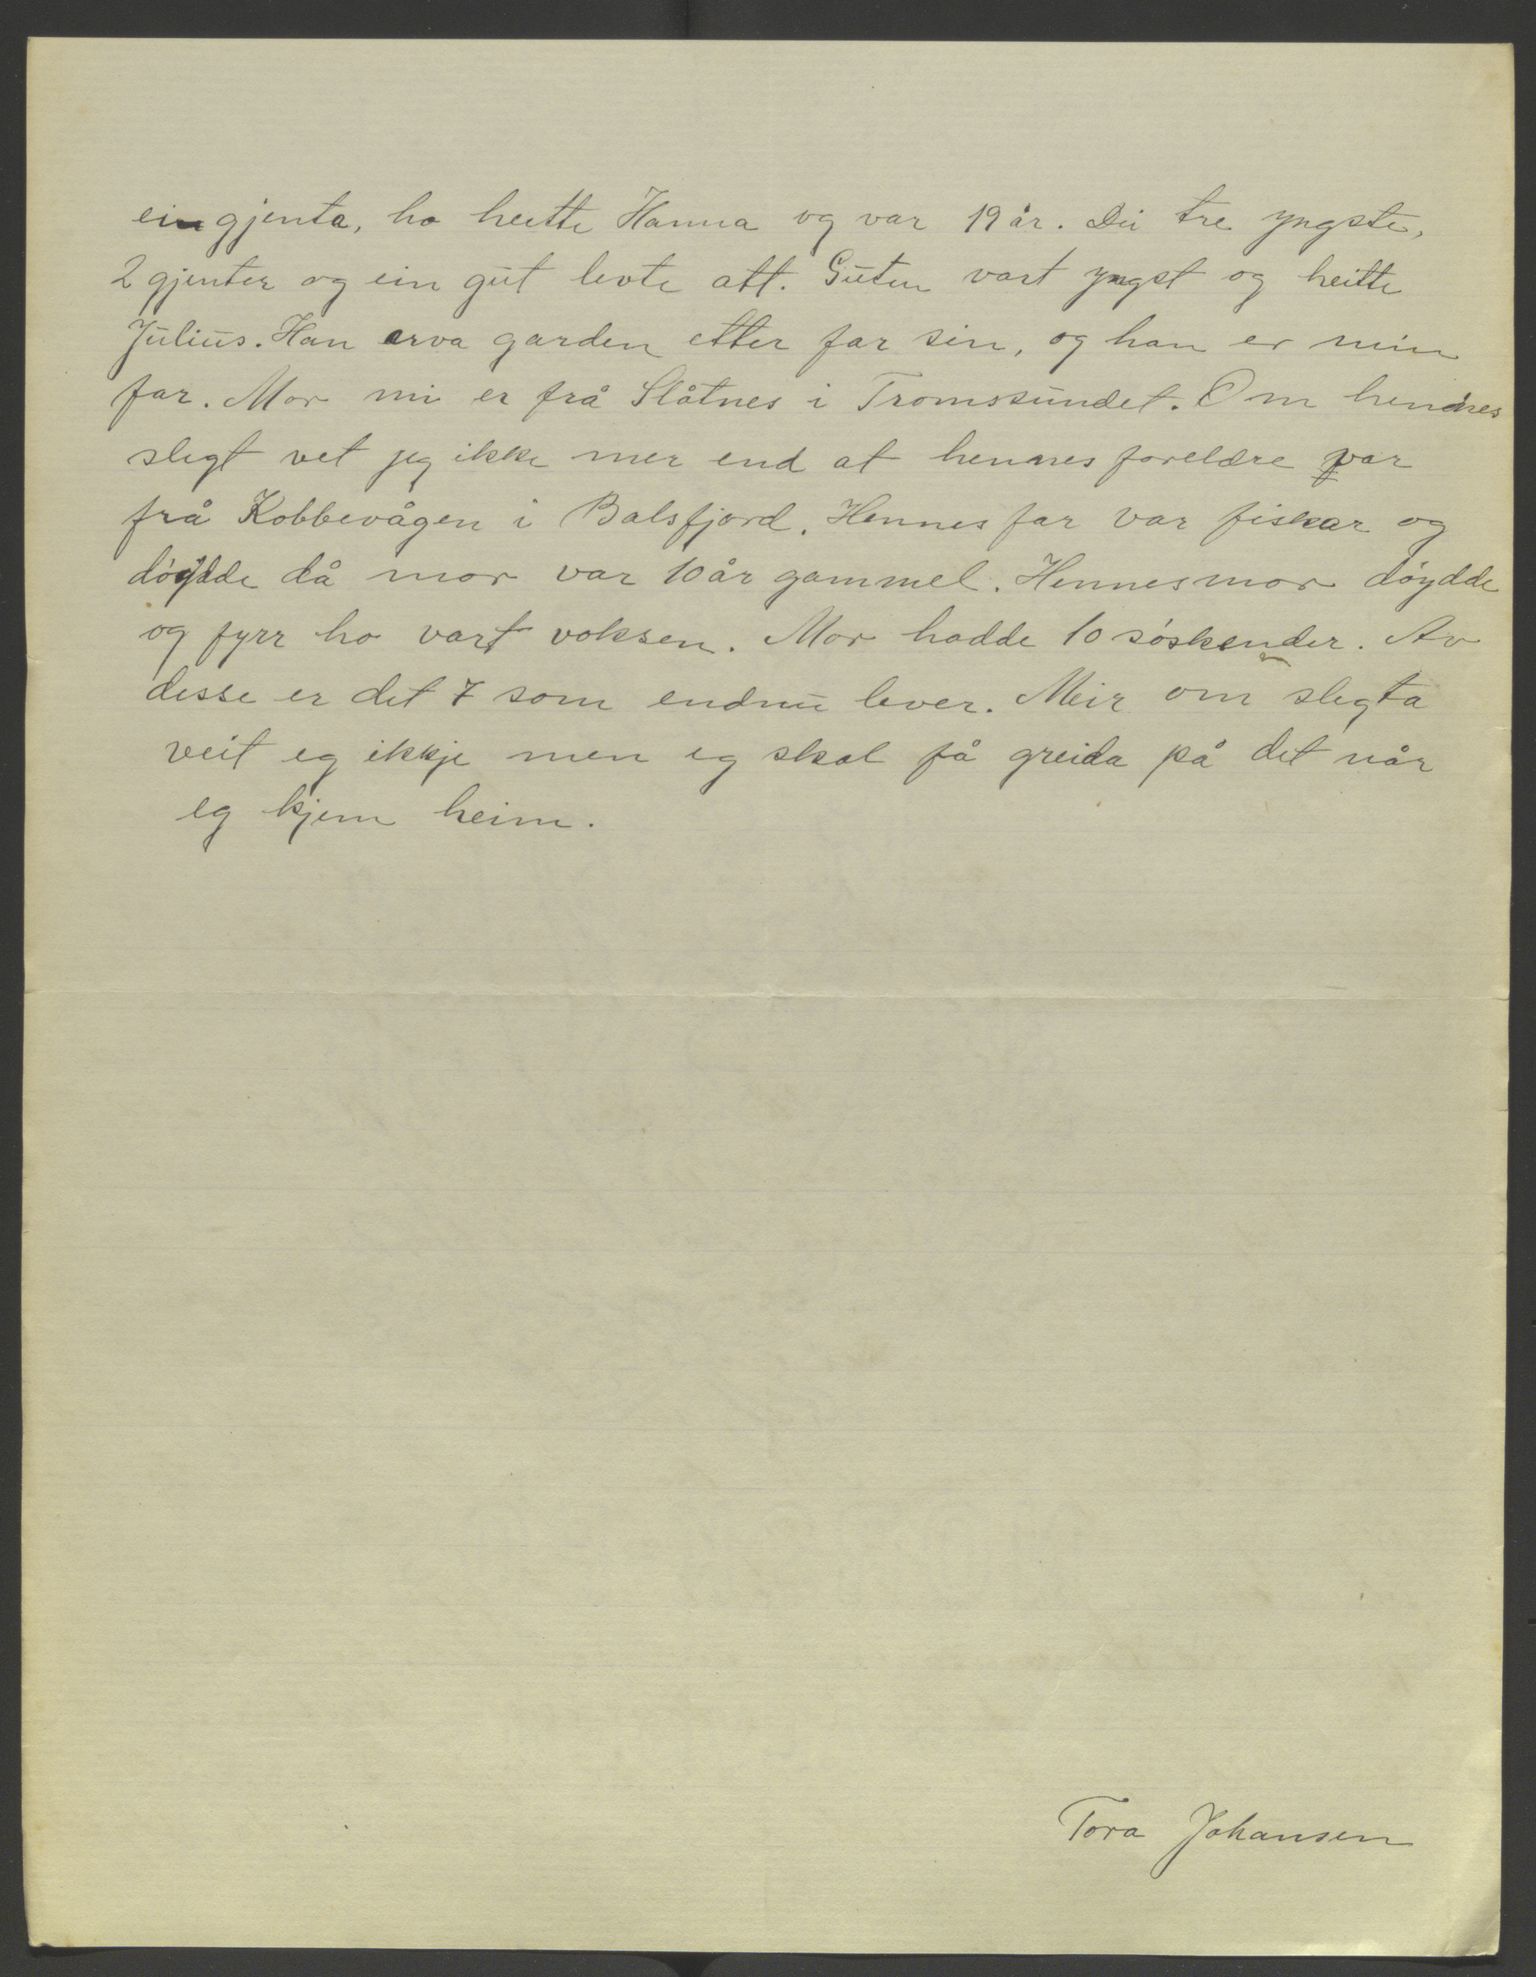 ein gjenta, ho heitte Hanna og var 19 år. Dei tre yngste,
2 gjenter og ein gut levte att. Guten vart yngst og heitte
Julius. Han arva garden etter far sin, og han er min
far. Mor mi er frå Slåtnes i Tromssundet. Om hennes
slegt vet jeg ikke mer end at hennes foreldre var
frå Kobbevågen i Balsfjord. Hennes far var fiskar og
døydde då mor var 10 år gammel. Hennes mor døydde
og fyrr ho vart voksen. Mor hadde 10 søskender. Av
desse er det 7 som endnu lever. Meir om slegta
veit eg ikkje men eg skal få greida på det når
eg kjem heim.
Tora Johansen